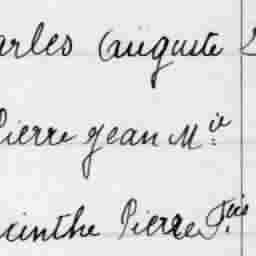 arles Auguste
Pierre Jean M.ie
cinthe Pierre F.cis